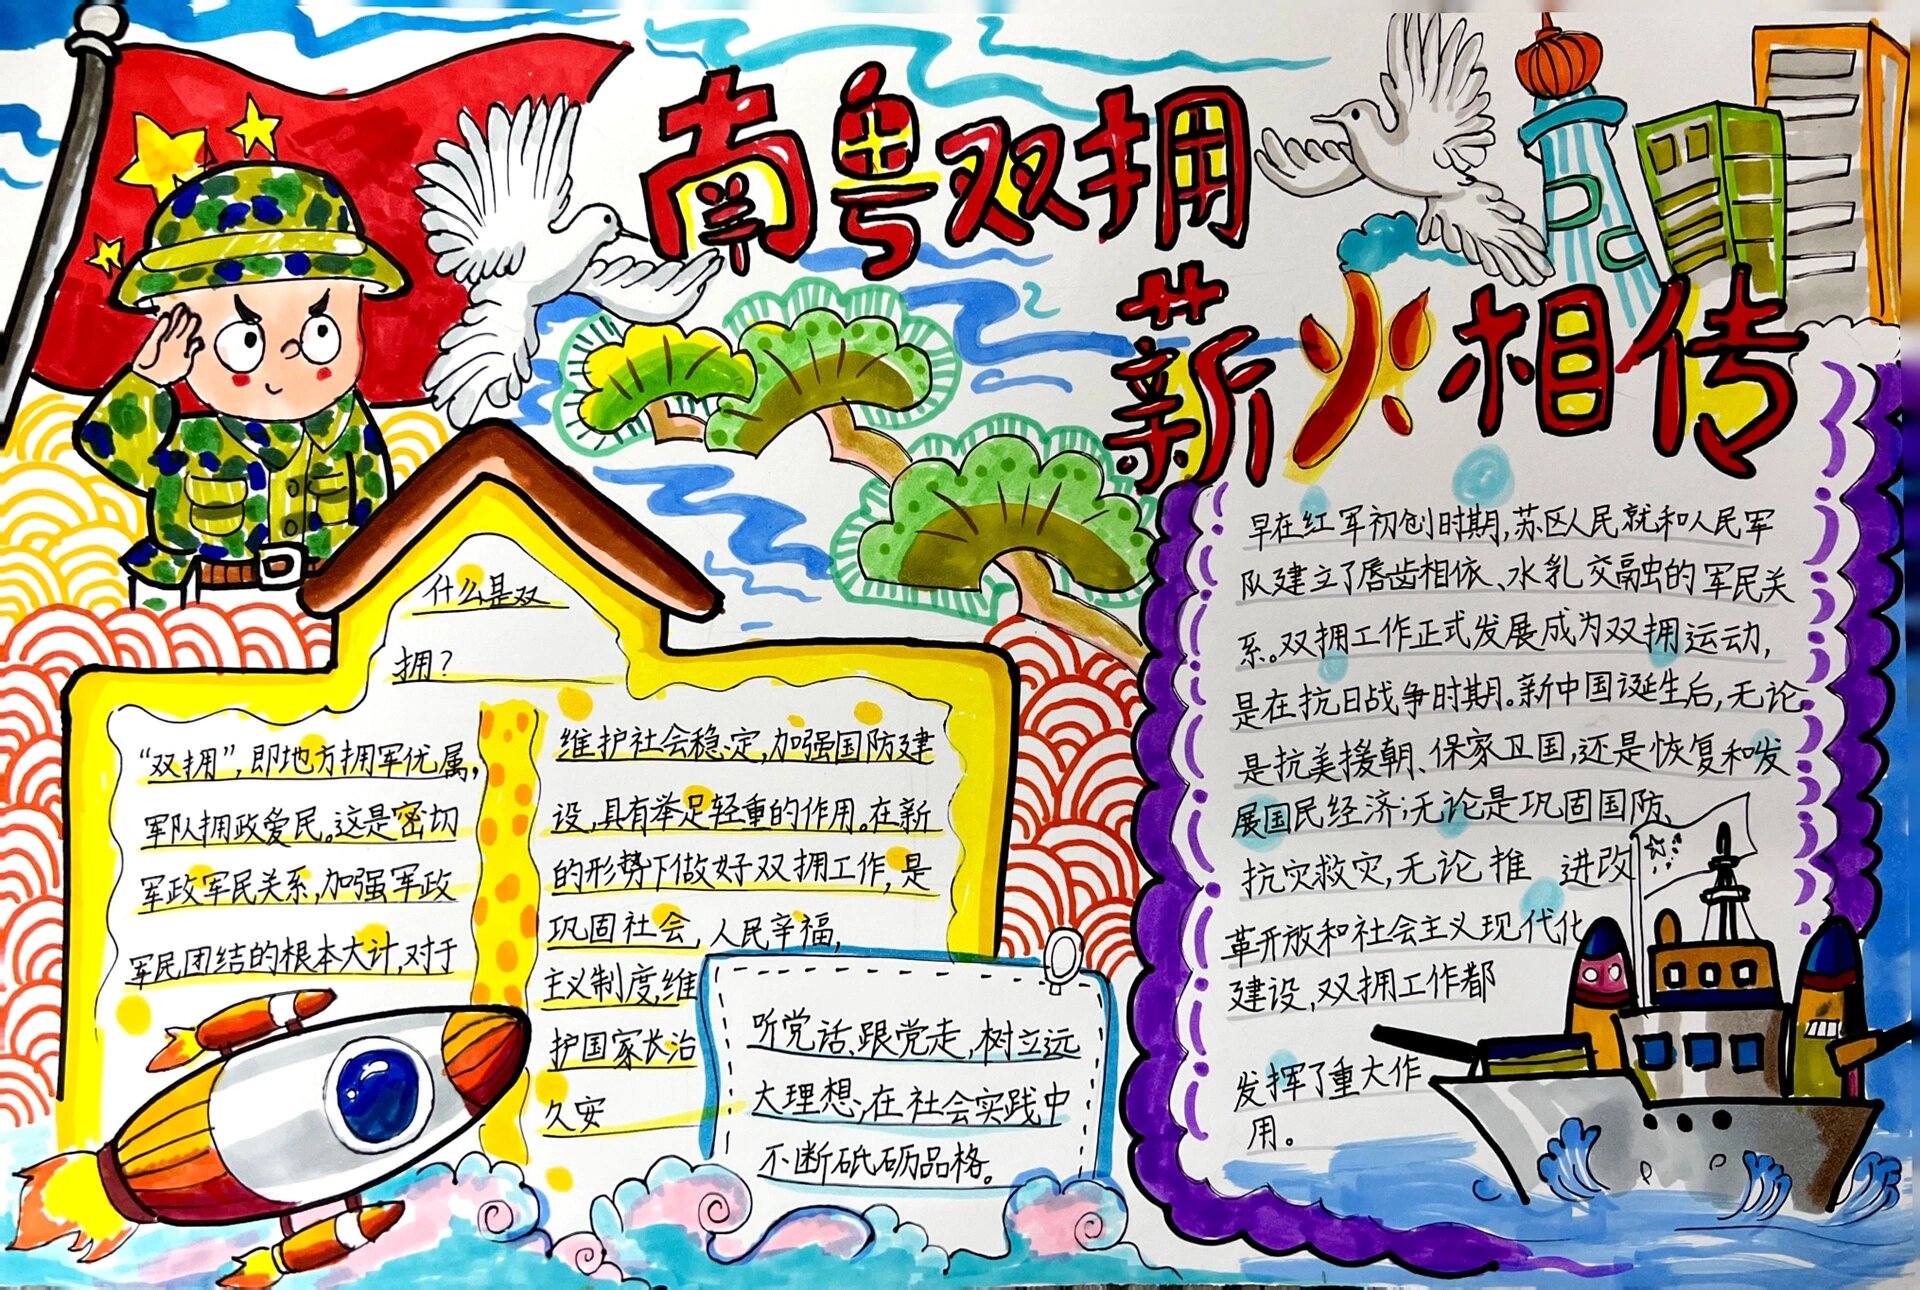 南粤双拥
薪火相传
什么是双
拥？
“双拥”，即地方拥军优属，
军队拥政爱民。这是密切
军政军民关系，加强军政
军民团结的根本大计，对于
维护社会稳定，加强国防建
设，具有举足轻重的作用。在新
的形势下做好双拥工作，是
巩固社会，人民幸福，
主义制度，维
护国家长治
久安
听党话、跟党走，树立远
大理想；在社会实践中
不断砥砺品格。
早在红军初创时期，苏区人民就和人民军
队建立了唇齿相依、水乳交融的军民关
系。双拥工作正式发展成为双拥运动，
是在抗日战争时期。新中国诞生后，无论
是抗美援朝、保家卫国，还是恢复和发
展国民经济；无论是巩固国防、
抗灾救灾，无论推 进改
革开放和社会主义现代化
建设，双拥工作都
发挥了重大作
用。